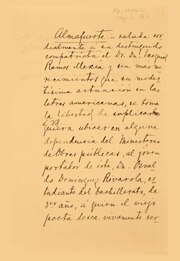 Almafuerte - saluda cor-
dialmente a su distinguido
compatriota el Dr. Dn. Ezequiel
Ramos Mexía; y sin más me-
recimientos que su modes-
tísima actuación en las
letras americanas, se toma
la libertad de suplicarle
quiera ubicar en alguna
dependencia del Ministerio
de Obras públicas, al joven
portador de esta, Dn. Peral-
do Dominguez Rivarola, es-
tudiante del bachillerato, de
3er año, á quien el viejo
poeta desea vivamente ser-